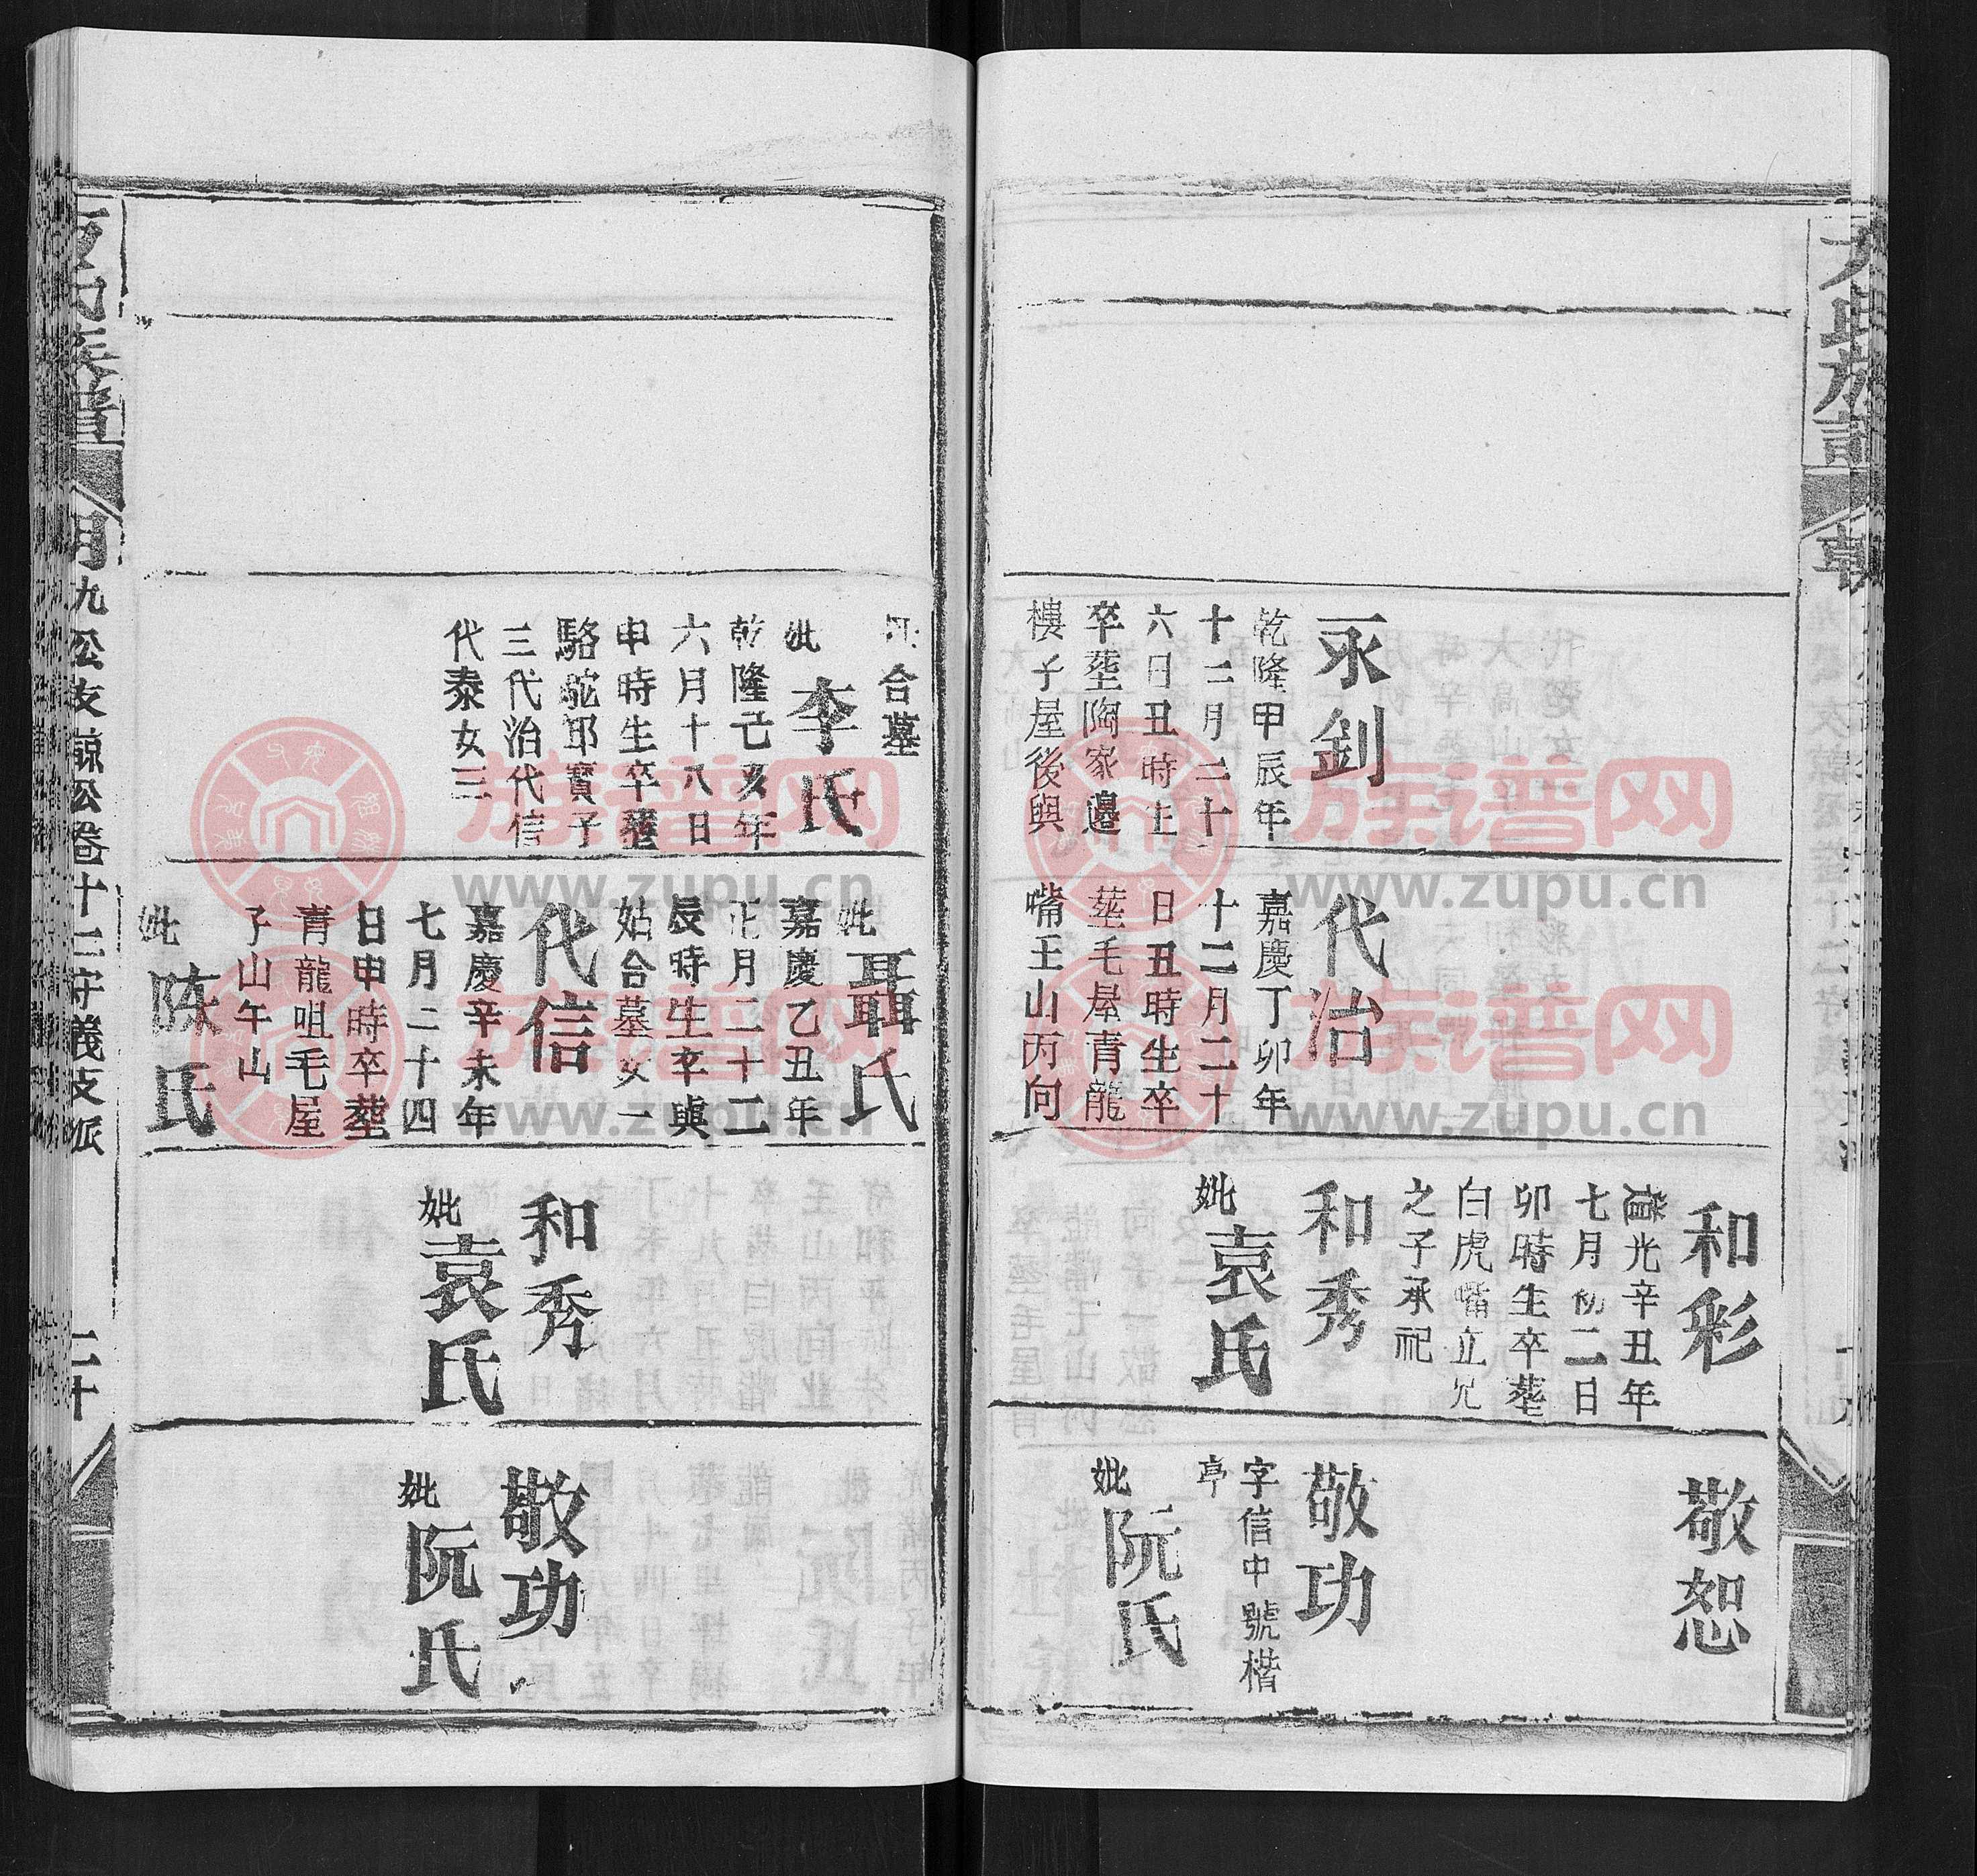 永釗
乾隆甲辰年
十二月二十
六日丑時生
卒塟陶家邉
樓子屋後與
代治
嘉慶丁卯年
十二月二十
日丑時生卒
塟毛屋青龍
嘴壬山丙向
和彩
道光辛丑年
七月初二日
卯時生卒塟
白虎嘴立兄
之子承祀
和秀
妣袁氏
敬恕
敬功
字信中號楷
亭
妣阮氏
合墓
妣李氏
乾隆己亥年
六月十八日
申時生卒塟
駱駝邱寳子
三代治代信
代泰女三
妣聶氏
嘉慶乙丑年
正月二十二
辰時生卒與
姑合墓女一
代信
嘉慶辛未年
七月二十四
日申時卒塟
青龍咀毛屋
子山午山
妣陈氏
和秀
妣袁氏
敬功
妣阮氏
氏族譜
九公支諒公卷十二守義支派
二十
族谱网
www.zupu.cn
族谱网
www.zupu.cn
族谱网
www.zupu.cn
族谱网
www.zupu.cn